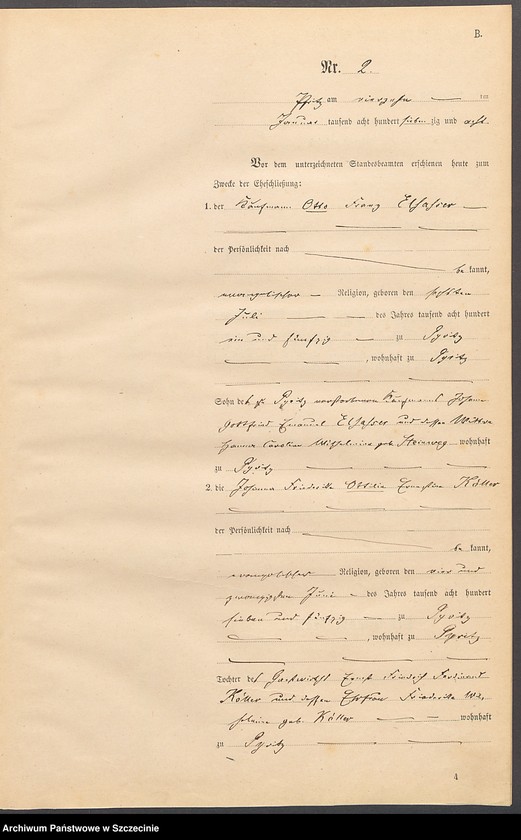 B.
Nr. 2.
Pyritz am vierzehn ten
Januar tausend acht hundert sieben zig und acht
Vor dem unterzeichneten Standesbeamten erschienen heute zum
Zwecke der Eheschließung:
1. der Kaufmann Otto Franz
der Persönlichkeit nach
be kannt,
evangelischer Religion, geboren den
Juli des Jahres tausend acht hundert
ein und fünfzig zu Pyritz
, wohnhaft zu Pyritz
Sohn des zu Pyritz verstorbenen Kaufmanns Johann
Gottfried Emanuel und dessen Wittwe
Hanna Caroline Wilhelmine geb. wohnhaft
zu Pyritz
2. die Johanna Friederike Ottilie Ernestine Köller
der Persönlichkeit nach
be kannt,
evangelischer Religion, geboren den vier und
zwanzigsten Juni des Jahres tausend acht hundert
sieben und fünfzig zu Pyritz
, wohnhaft zu Pyritz
Tochter des Gastwirth Ernst Friedrich Ferdinand
Köller und dessen Ehefrau Friederike Wil-
helmine geb. Köller wohnhaft
zu Pyritz
4
Archiwum Państwowe w Szczecinie